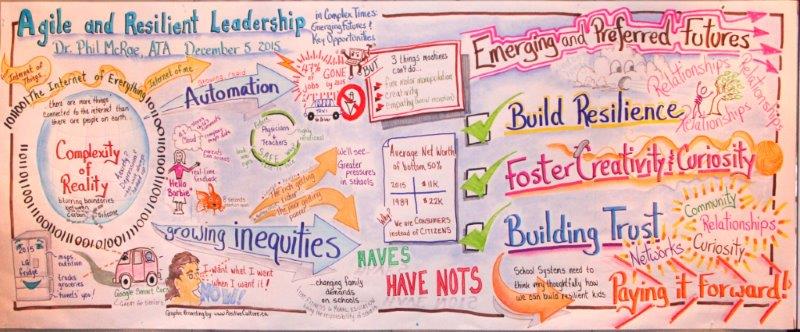 Agile and Resilient Leadership
Dr. Phil McRae, ATA December 5 2015
in Complex Times:
Emerging Futures &
Key Opportunities
Internet of
Things...
The Internet of Everything
Internet of me
there are more things
connected to the internet than
there are people on earth.
Complexity
of
Reality
blurring boundaries
between
Carbon
Silicone
Automation
47%
of
jobs
GONE
by 2025
TAXI
BUT
3 things machines
can't do...
fine motor manipulation
creativity
empathy
Hello
Barbie
real-time
feedback
8 seconds
Physicians
&
Teachers
SAFE
We'll see..
Greater
pressures
in schools
the rich getting
richer
the poor getting
poorer
growing inequities
Average Net Worth
of bottom 50%
2015 $11K
1989 $22K
Why?
We are CONSUMERS
instead of CITIZENS
HAVES
HAVE NOTS
changing family
demands
on schools
2015
LG
fridge
maps
nutrition
tracks
groceries
tweets you!
Google Smart Cars
Great for Seniors
I want what I want
when I want it!
NOW!
Graphic Recording by www.PositiveCulture.ca
Emerging and Preferred Futures
Relationships
Relationships
Relationship
Build Resilience
Foster Creativity & Curiosity
Building Trust
Community
Relationships
Networks
Curiosity
School Systems need to
think thoughtfully how
we can build resilient kids
Paying it Forward!